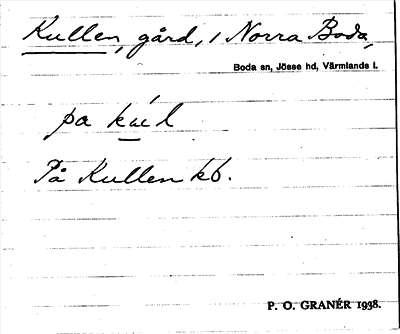 Kullen, gård, i Norra Boda,
Boda sn, Jösse hd, Värmlands l.
pa
På Kullen kb.
P. O. GRANÉR 1938.